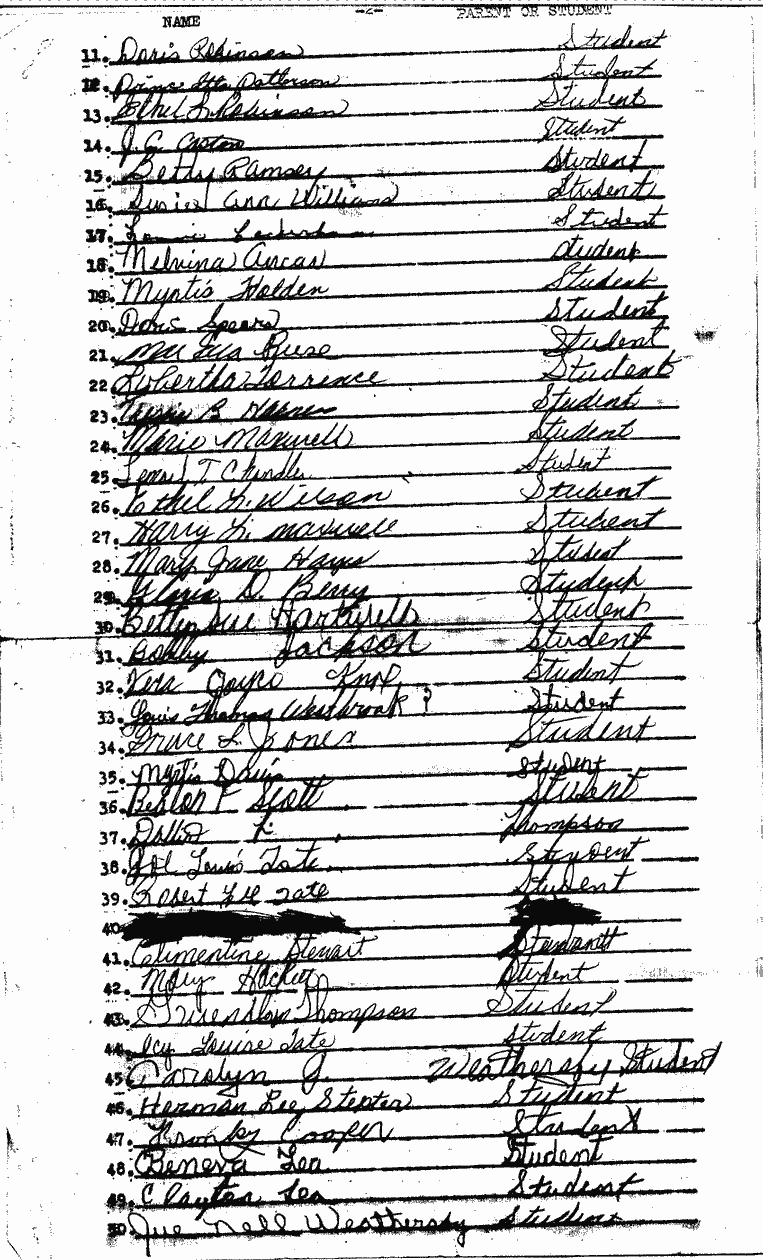 NAME -2- PARENT OR STUDENT
11. Doris Robinson Student
12. Patterson Student
13. Ethel L. Robinson Student
14. J.C. Student
15. Betty Ramsey Student
16. Ann Williams Student
17. Student
18. Melvina Student
19. Myrtis Holden Student
20. Doris Spears Student
21. Student
22. Robertha Torrence Student
23. B. Student
24. Marie Maxwell Student
25. T Chandler Student
26. Ethel L. Wilson Student
27. Harry L. Maxwell Student
28. Mary Jane Hayes Student
29. Gloria D. Berry Student
30. Betty Sue Hartwell Student
31. Bobby Jackson Student
32. Vera Student
33. Louis Thomas Westbrook ? Student
34. Grace L. Jones Student
35. Myrtis Davis Student
36. F Scott Student
37. Thompson
38. Joe Louis Tate Student
39. Robert Lee Tate Student
40.
41. Climentine Stewart
42. Mary Hacket Student
43. Thompson Student
44. Icy Louise Tate Student
45. Carolyn J. Weathersby Student
46. Herman Lee Stepter Student
47. Cooper Student
48. Beneva Lea Student
49. Clayton Lea Student
50. Nell Weathersby Student